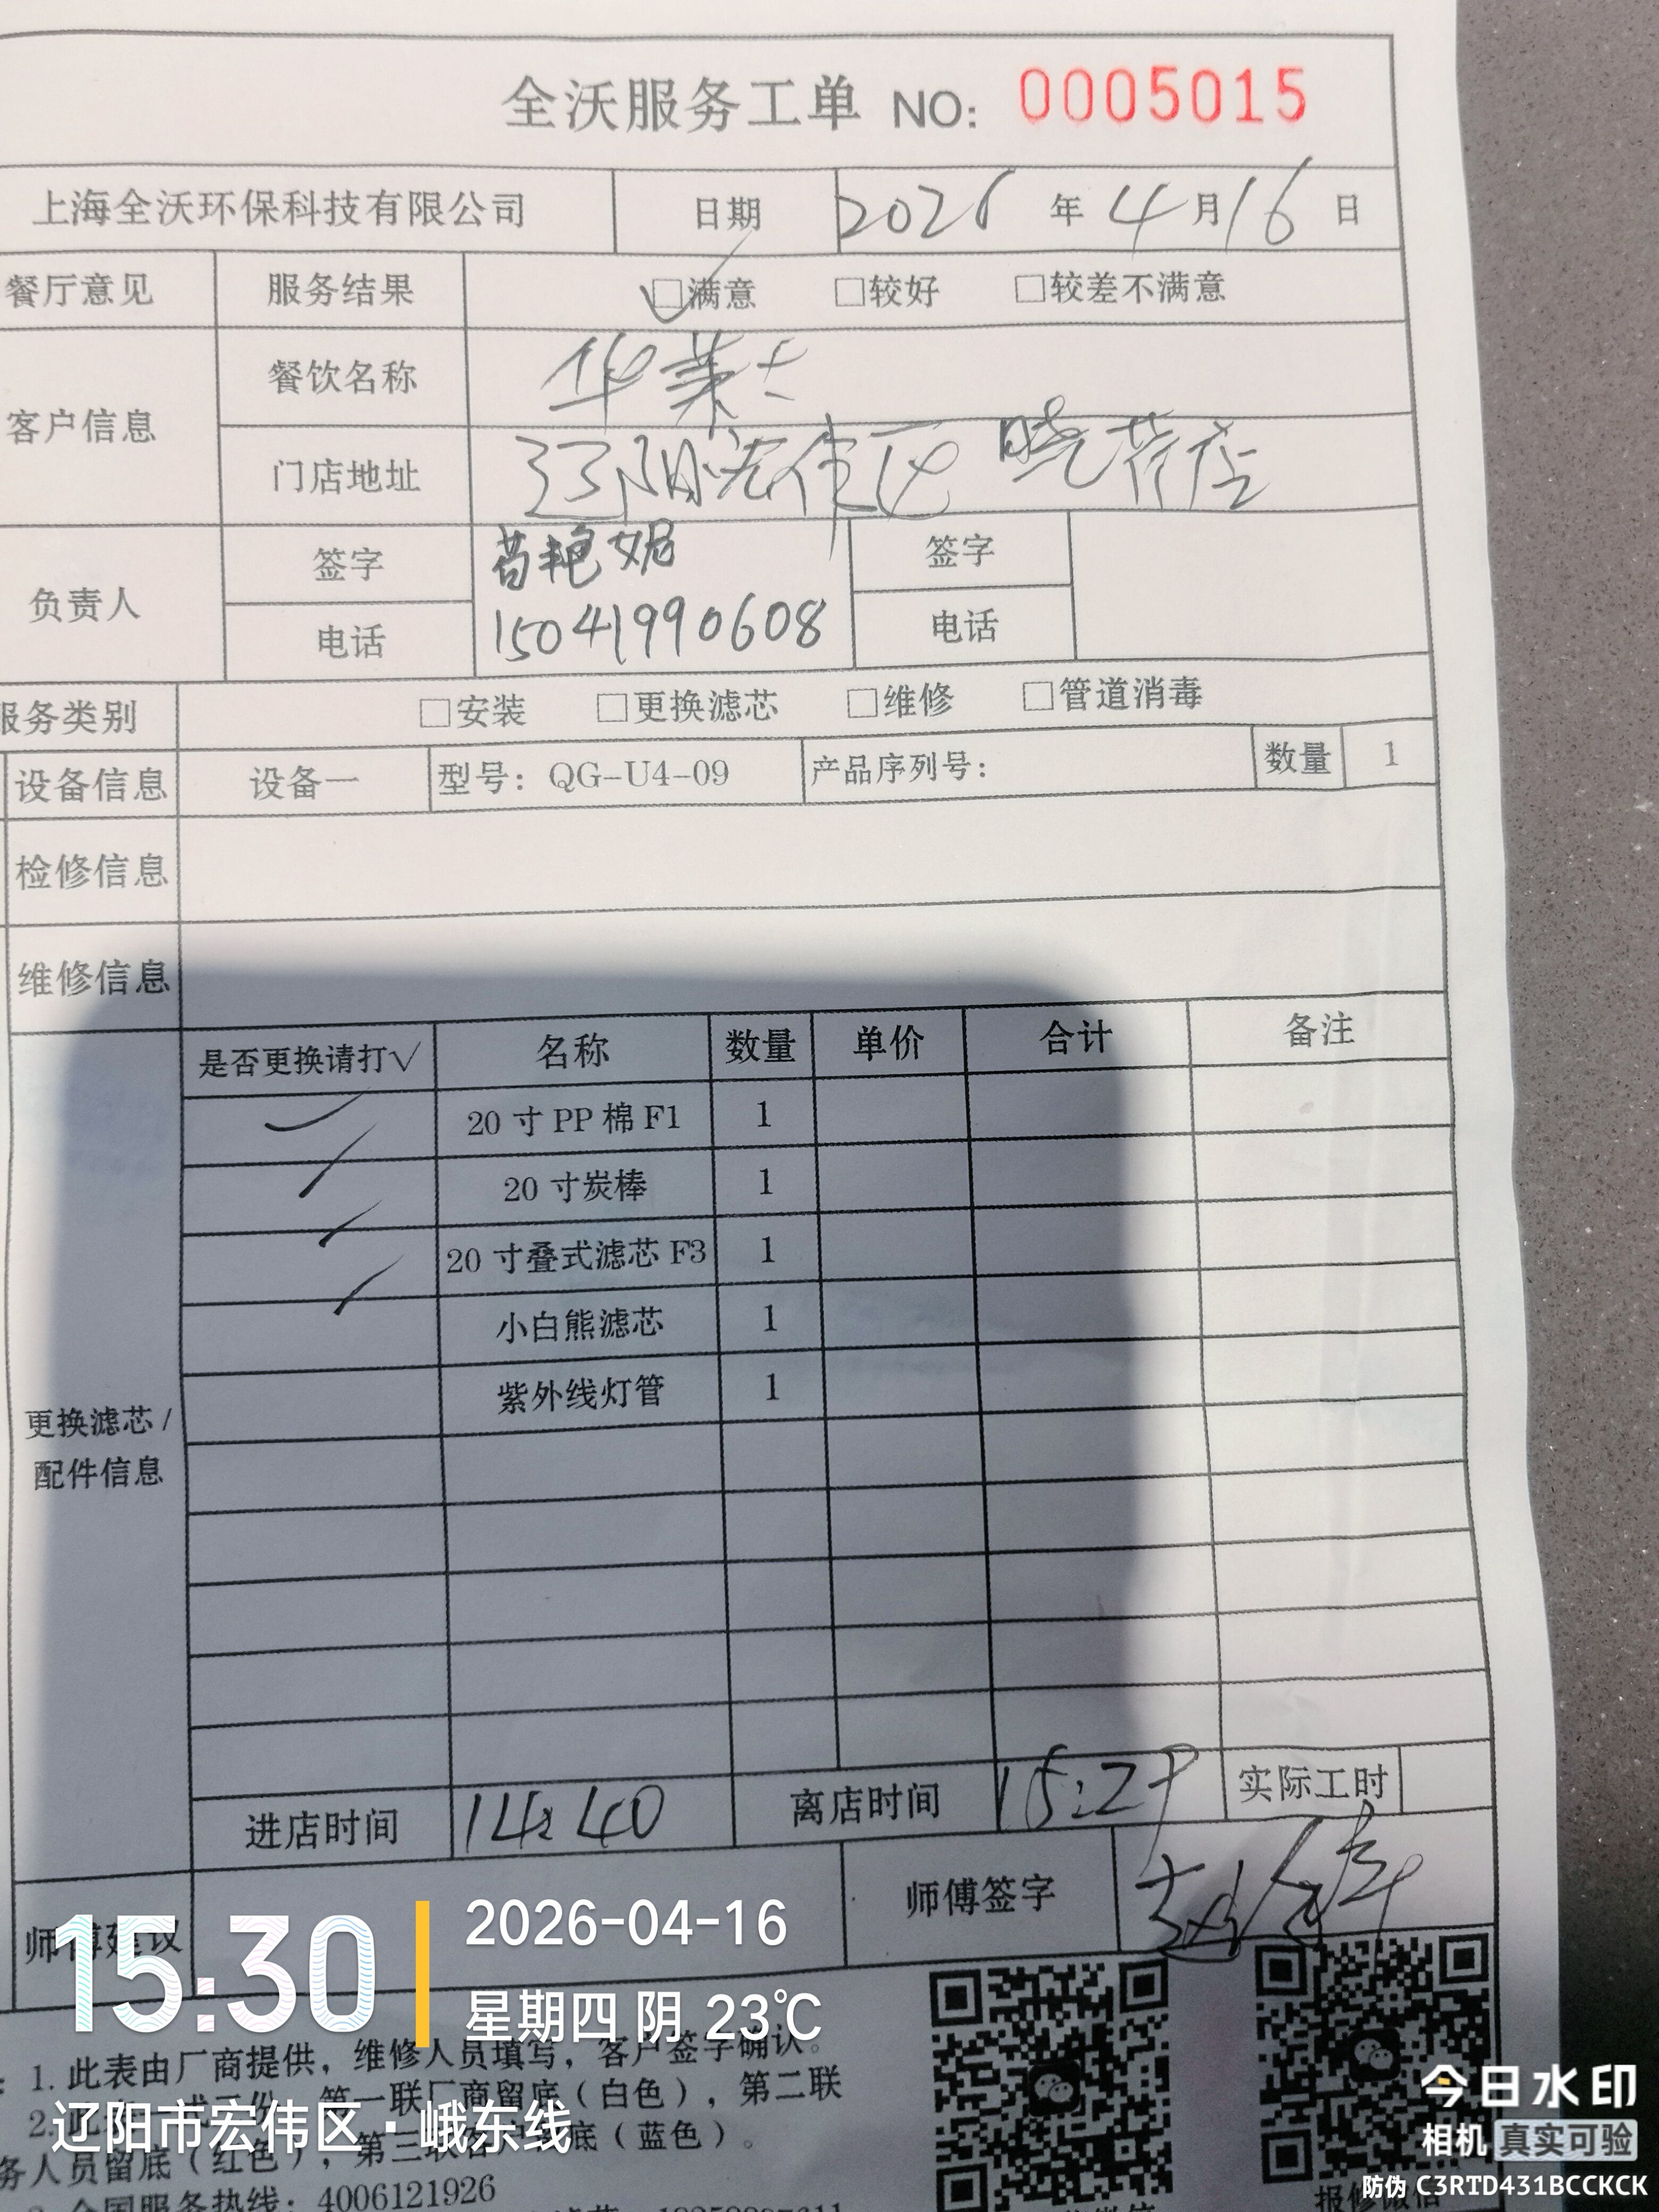 全沃服务工单 NO: 0005015
上海全沃环保科技有限公司 日期 2026 年 4 月 16 日
餐厅意见 服务结果 ☑满意 □较好 □较差不满意
客户信息 餐饮名称 华莱士
门店地址 辽阳宏伟区 晓荷店
负责人 签字 艳妮 签字
电话 15041990608 电话
服务类别 □安装 □更换滤芯 □维修 □管道消毒
设备信息 设备一 型号: QG-U4-09 产品序列号: 数量 1
检修信息
维修信息
是否更换请打√ 名称 数量 单价 合计 备注
✓ 20 寸 PP 棉 F1 1
✓ 20 寸炭棒 1
✓ 20 寸叠式滤芯 F3 1
✓ 小白熊滤芯 1
紫外线灯管 1
更换滤芯/
配件信息
进店时间 14:40 离店时间 15:29 实际工时
师傅建议 师傅签字
15:30
2026-04-16
星期四 阴 23℃
1. 此表由厂商提供，维修人员填写，客户签字确认。
2. 此 式 份 第一联厂商留底（白色），第二联
辽阳市宏伟区·峨东线
务人员留底（红色），第三联 底（蓝色）。
全国服务热线: 4006121926
报修微信
今日水印
相机 真实可验
防伪 C3RTD431BCCKCK